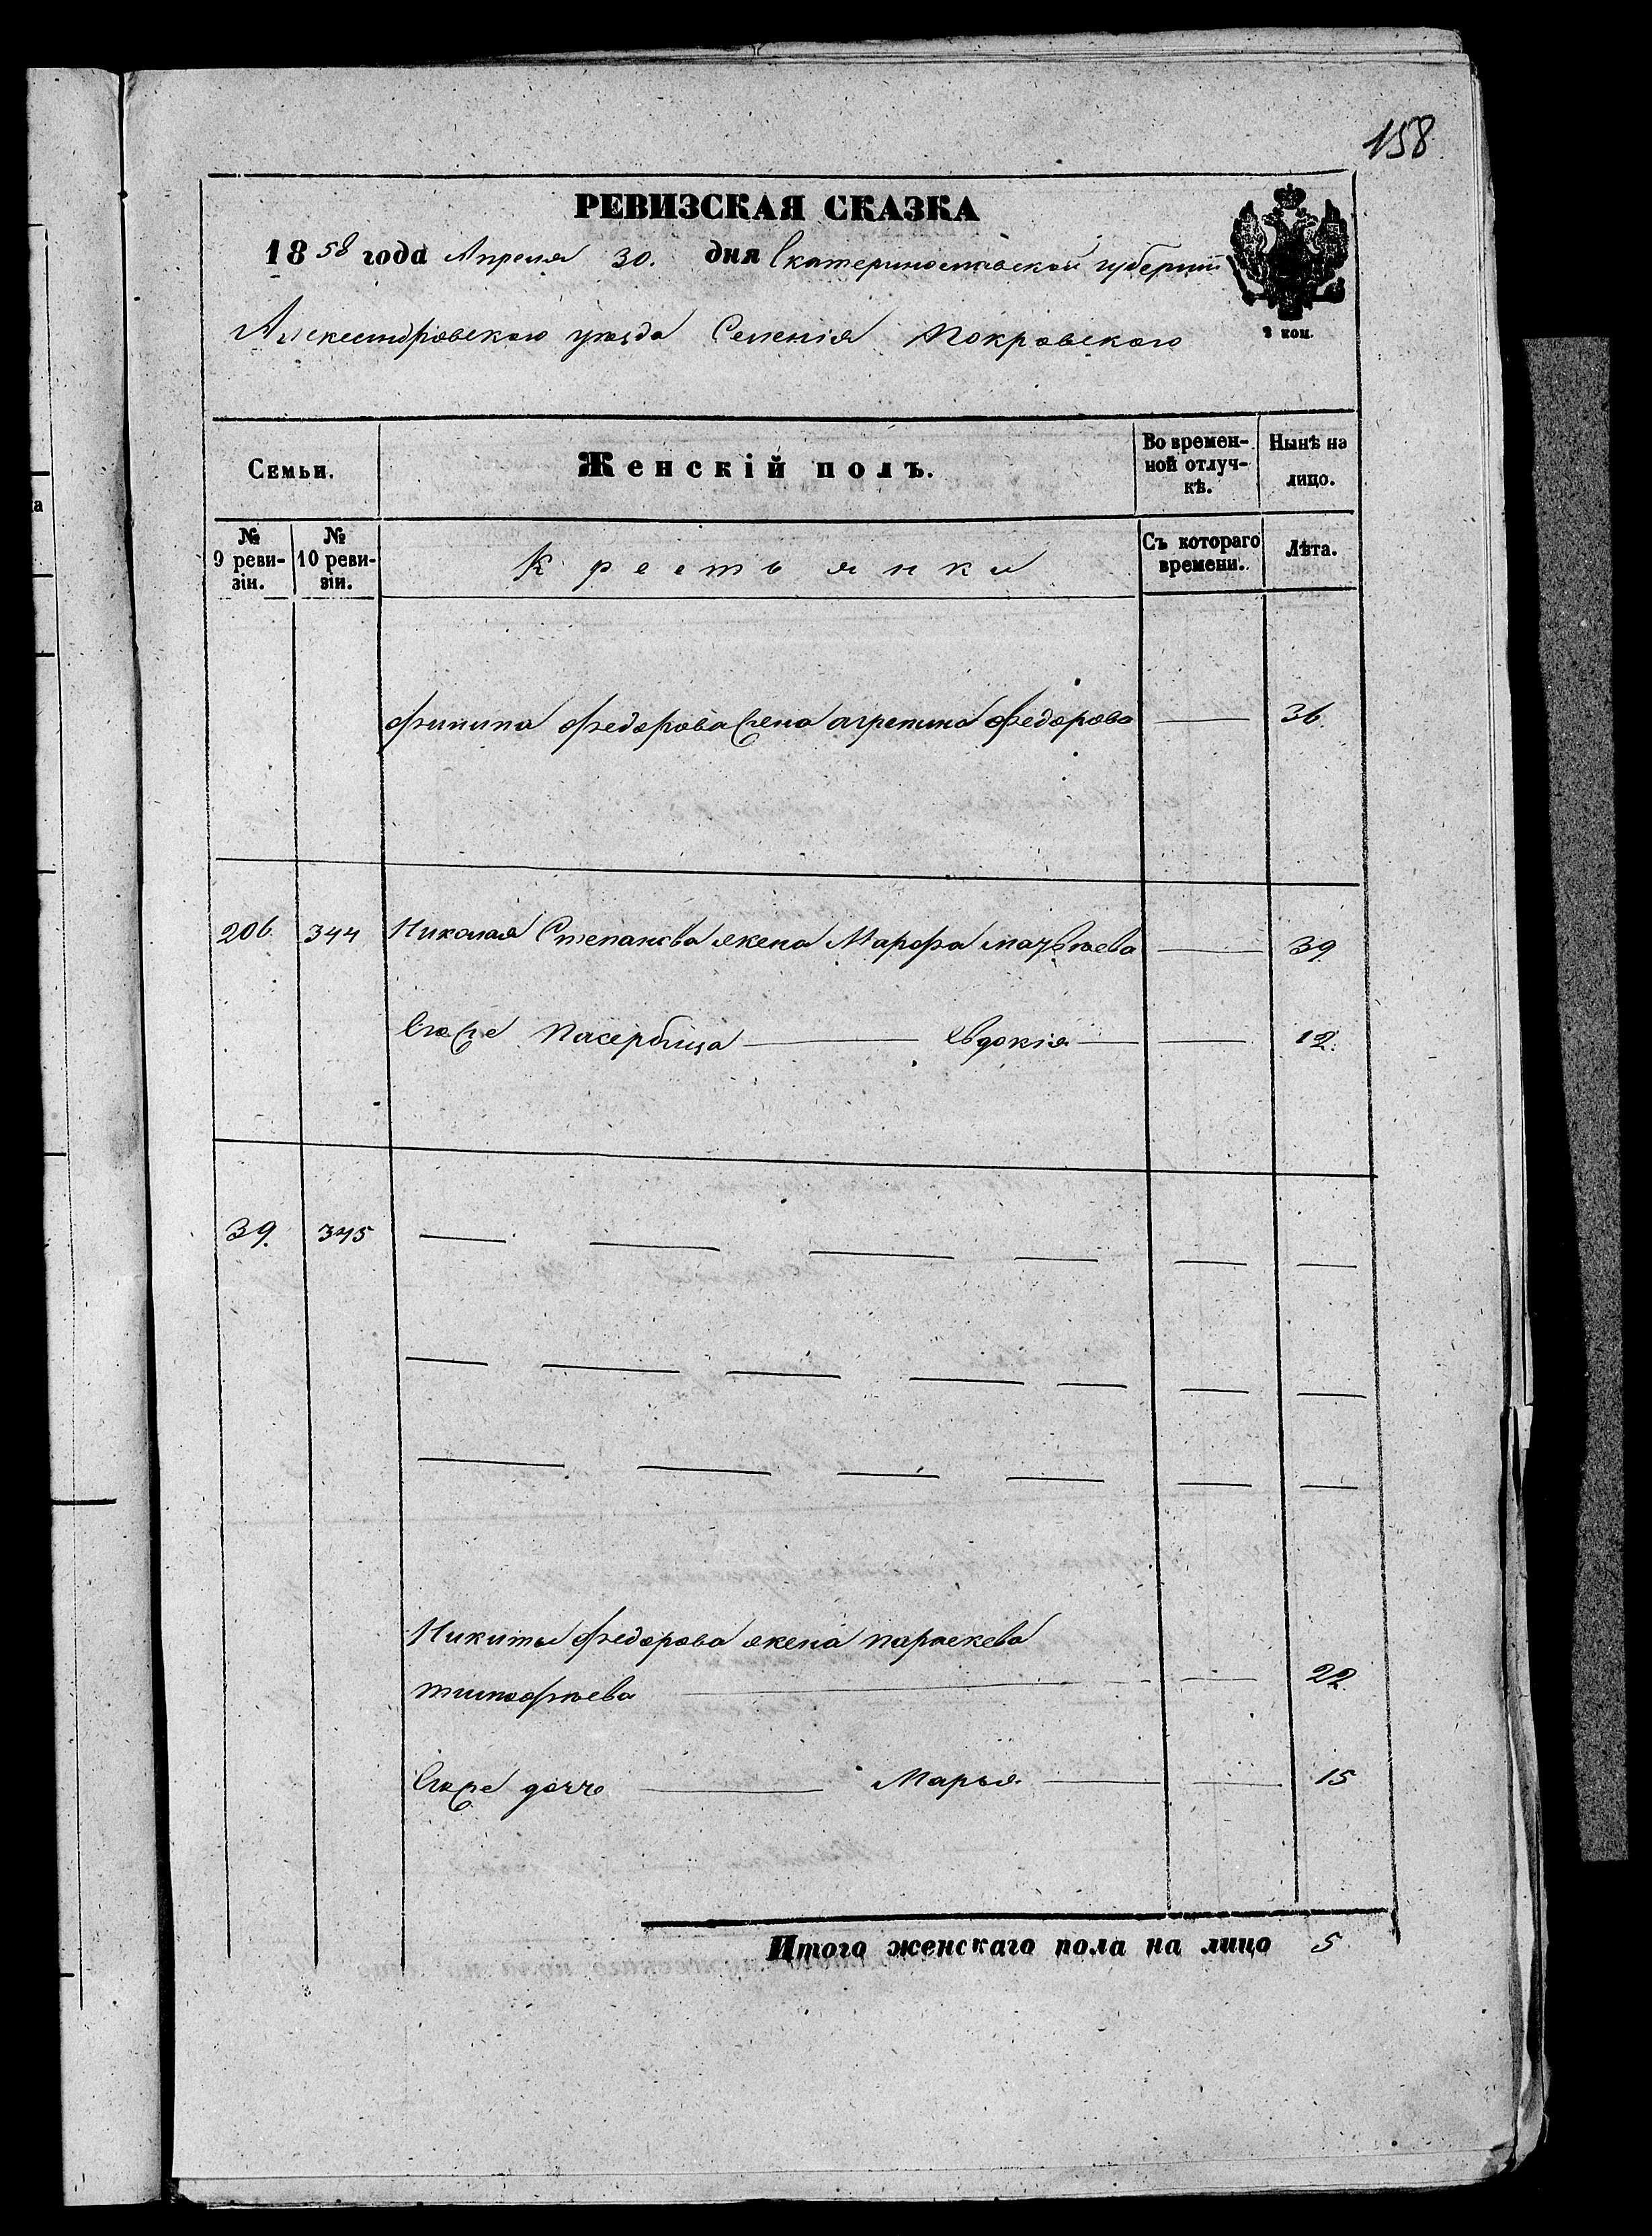 158
РЕВИЗСКАЯ СКАЗКА
1858 года Апреля 30. дня Екатеринославской губернии
Александровского уезда Селенія Покровского
2 коп.
Семьи. Женскій полъ. Во времен- Нынѣ на
ной отлуч- лицо.
кѣ.
№ № Съ котораго Лѣта.
9 реви- 10 реви- Крестьянки времени.
зіи. зіи.
Филипа Федорова жена агрепина Федорова — 36.
206. 344 Николая Степанова жена Марфа матвѣева — 39.
Егоже Пасербица — Евдокія — — 12.
39. 345 — — — — — —
— — — — — — —
— — — — — —
Никиты Федорова жена параскева
тимофѣева — — 22.
Егоже дочь — Марья — — 15
Итого женскаго пола на лицо 5